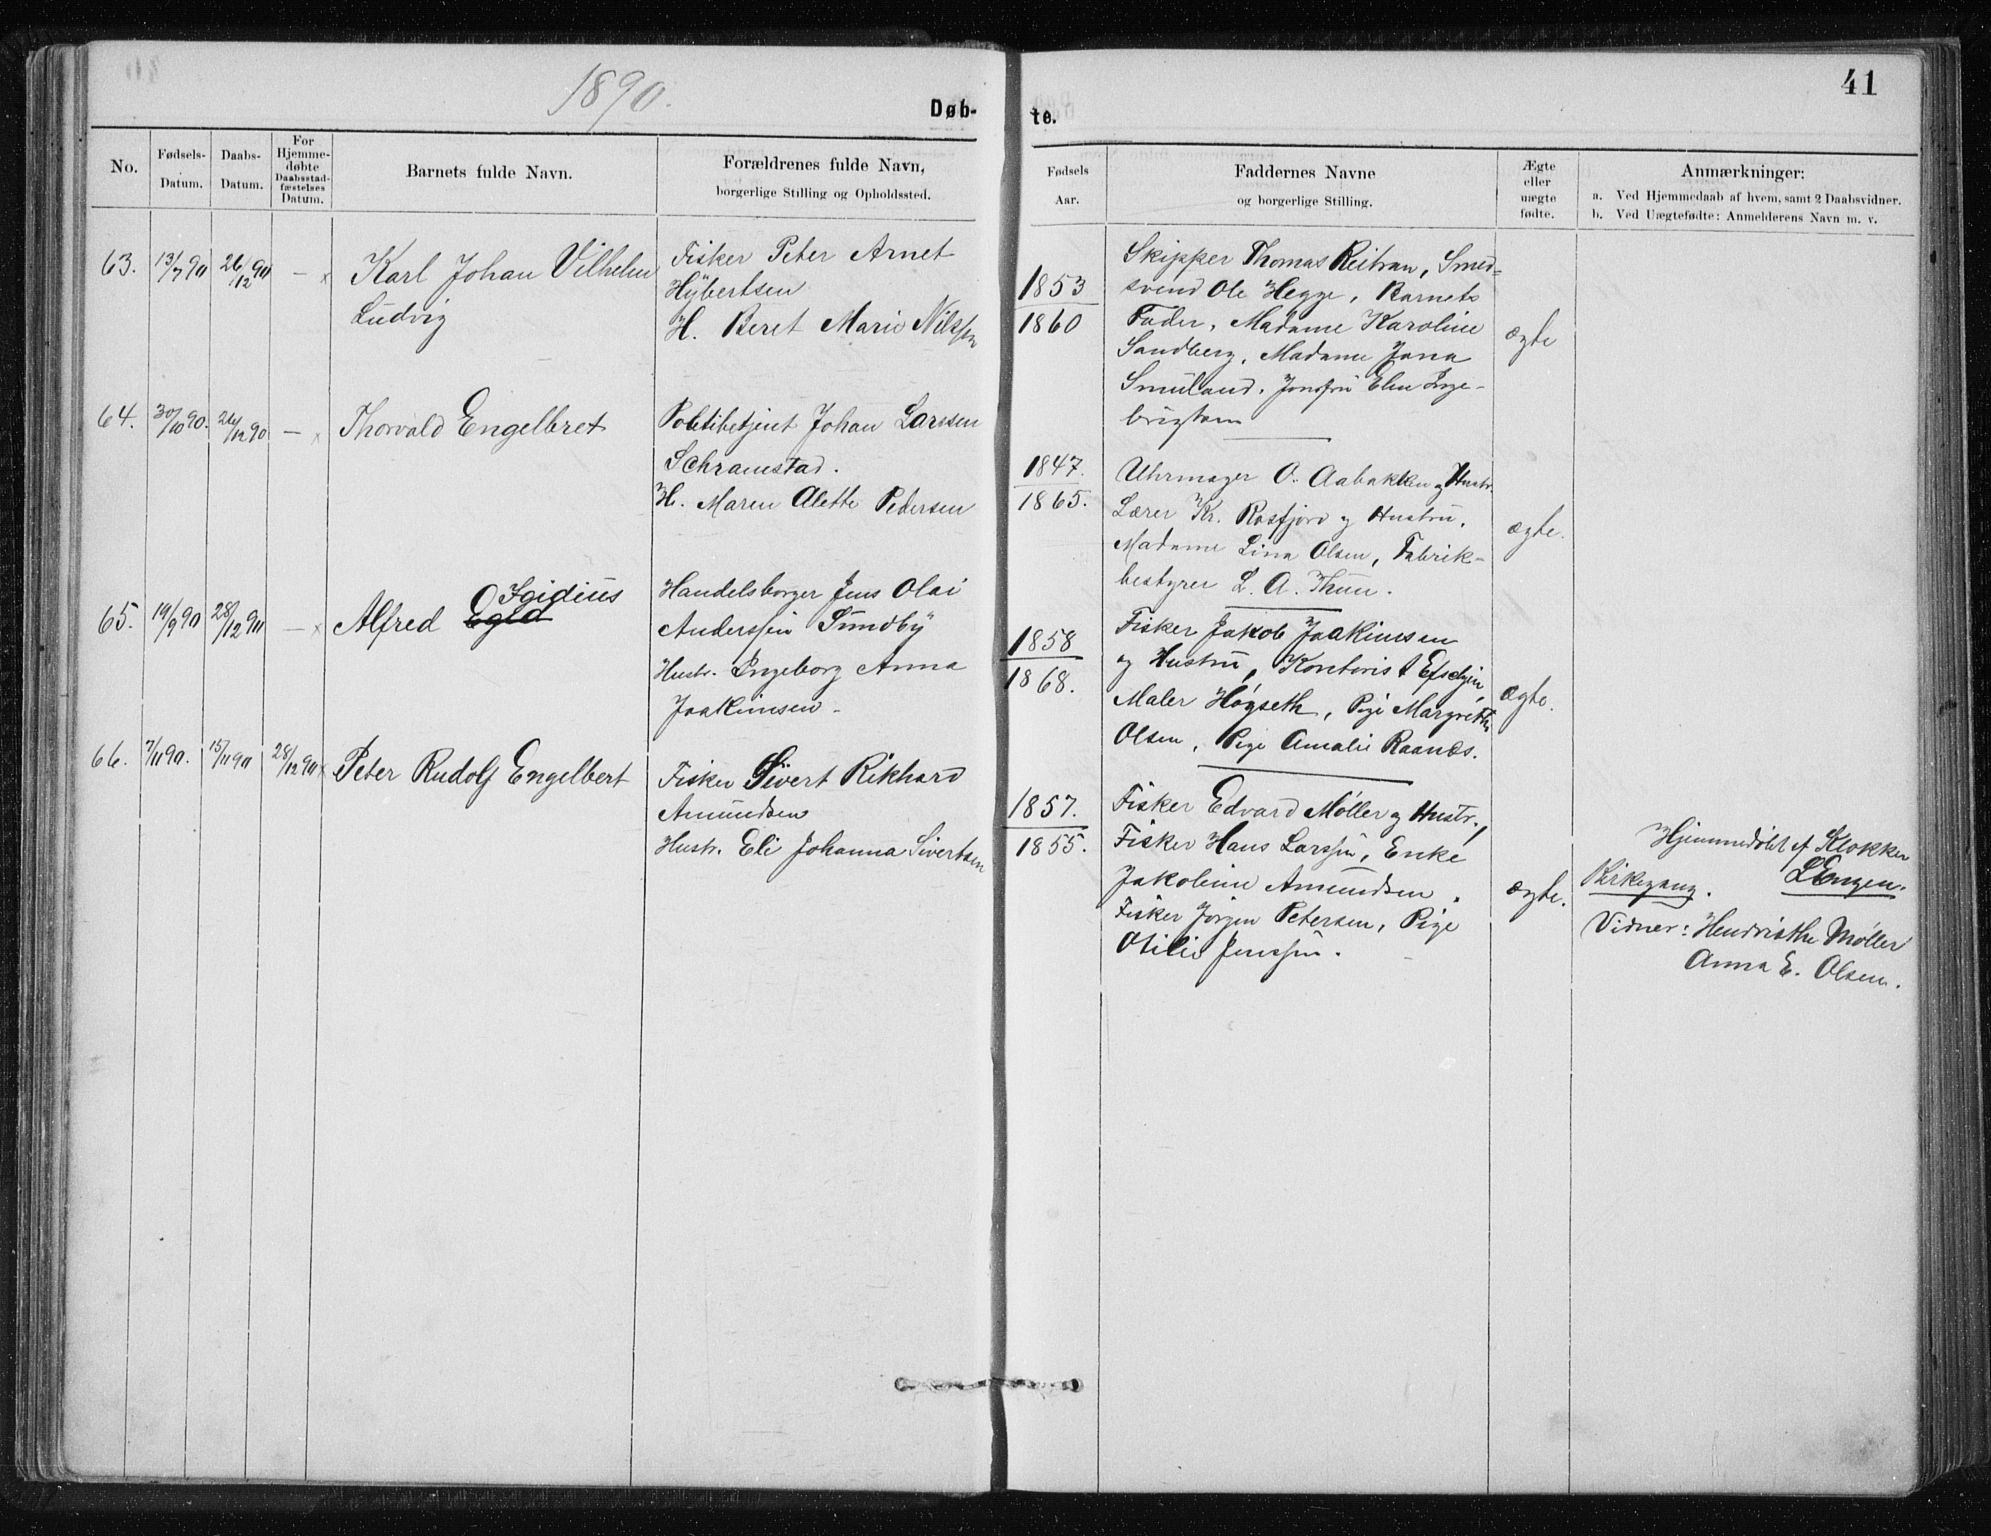 1890.
Døb-
te.
41
No.
Fødsels-
Datum.
Daabs-
Datum.
For
Hjemme-
døbte
Daabsstad-
fæstelses
Datum.
Barnets fulde Navn.
Forældrenes fulde Navn,
borgerlige Stilling og Opholdssted.
Fødsels
Aar.
Faddernes Navne
og borgerlige Stilling.
Ægte
eller
uægte
fødte.
Anmærkninger:
a. Ved Hjemmedaab af hvem, samt 2 Daabsvidner.
b. Ved Uægtefødte: Anmelderens Navn m. v.
63.
13/7 90
26/12 90
—
x
Karl Johan Vilhelm
Ludvig
Fisker Peter Arnet
Hÿbertsen
H. Beret Marie Nilssen
1853
1860
Skipper Thomas Reitran, Smed-
svend Ole Hegge, Barnets
Fader, Madame Karoline
Sandberg, Madame Jana
Smuland, Jomfru Elen Inge-
brigtsen
ægte
64.
30/10 90.
26/12 90
—
x
Thorvald Engelbret
Politibetjent Johan Larssen
Schramstad.
H. Maren Alette Pedersen
1847.
1865.
Uhrmager O. Aabakken og Hustr.
Lærer Kr. Rosfjord og Hustru,
Madame Lina Olsen, Fabrik-
bestyrer L. A. Thun.
ægte.
65.
19/9 90
28/12 90
—
x
Igidius
Alfred Egid
Handelsborger Jens Olai
Anderssen Sundbÿ
Hustr. Ingeborg Anna
Joakimsen.
1858
1868.
Fisker Jakob Joakimssen
og Hustru, Kontorist
Maler Høgseth, Pige Margrethe
Olsen, Pige Amalie Raanes.
ægte.
66.
7/11 90.
15/11 90
28/12 90
x
Peter Rudolf Engelbert
Fisker Sivert Rikhard
Amundsen
Hustr. Eli Johanna Sivertsen
1857.
1855.
Fisker Edvard Møller og Hustr.,
Fisker Hans Larssen, Enke
Jakobine Amundsen,
Fisker Jørgen Petersen, Pige
Otilie Jenssen.
ægte.
Hjemmedøbt af Klokker
Kirkegang. L. Engen.
Vidner: Hendrikke Møller
Anna E. Olsen.